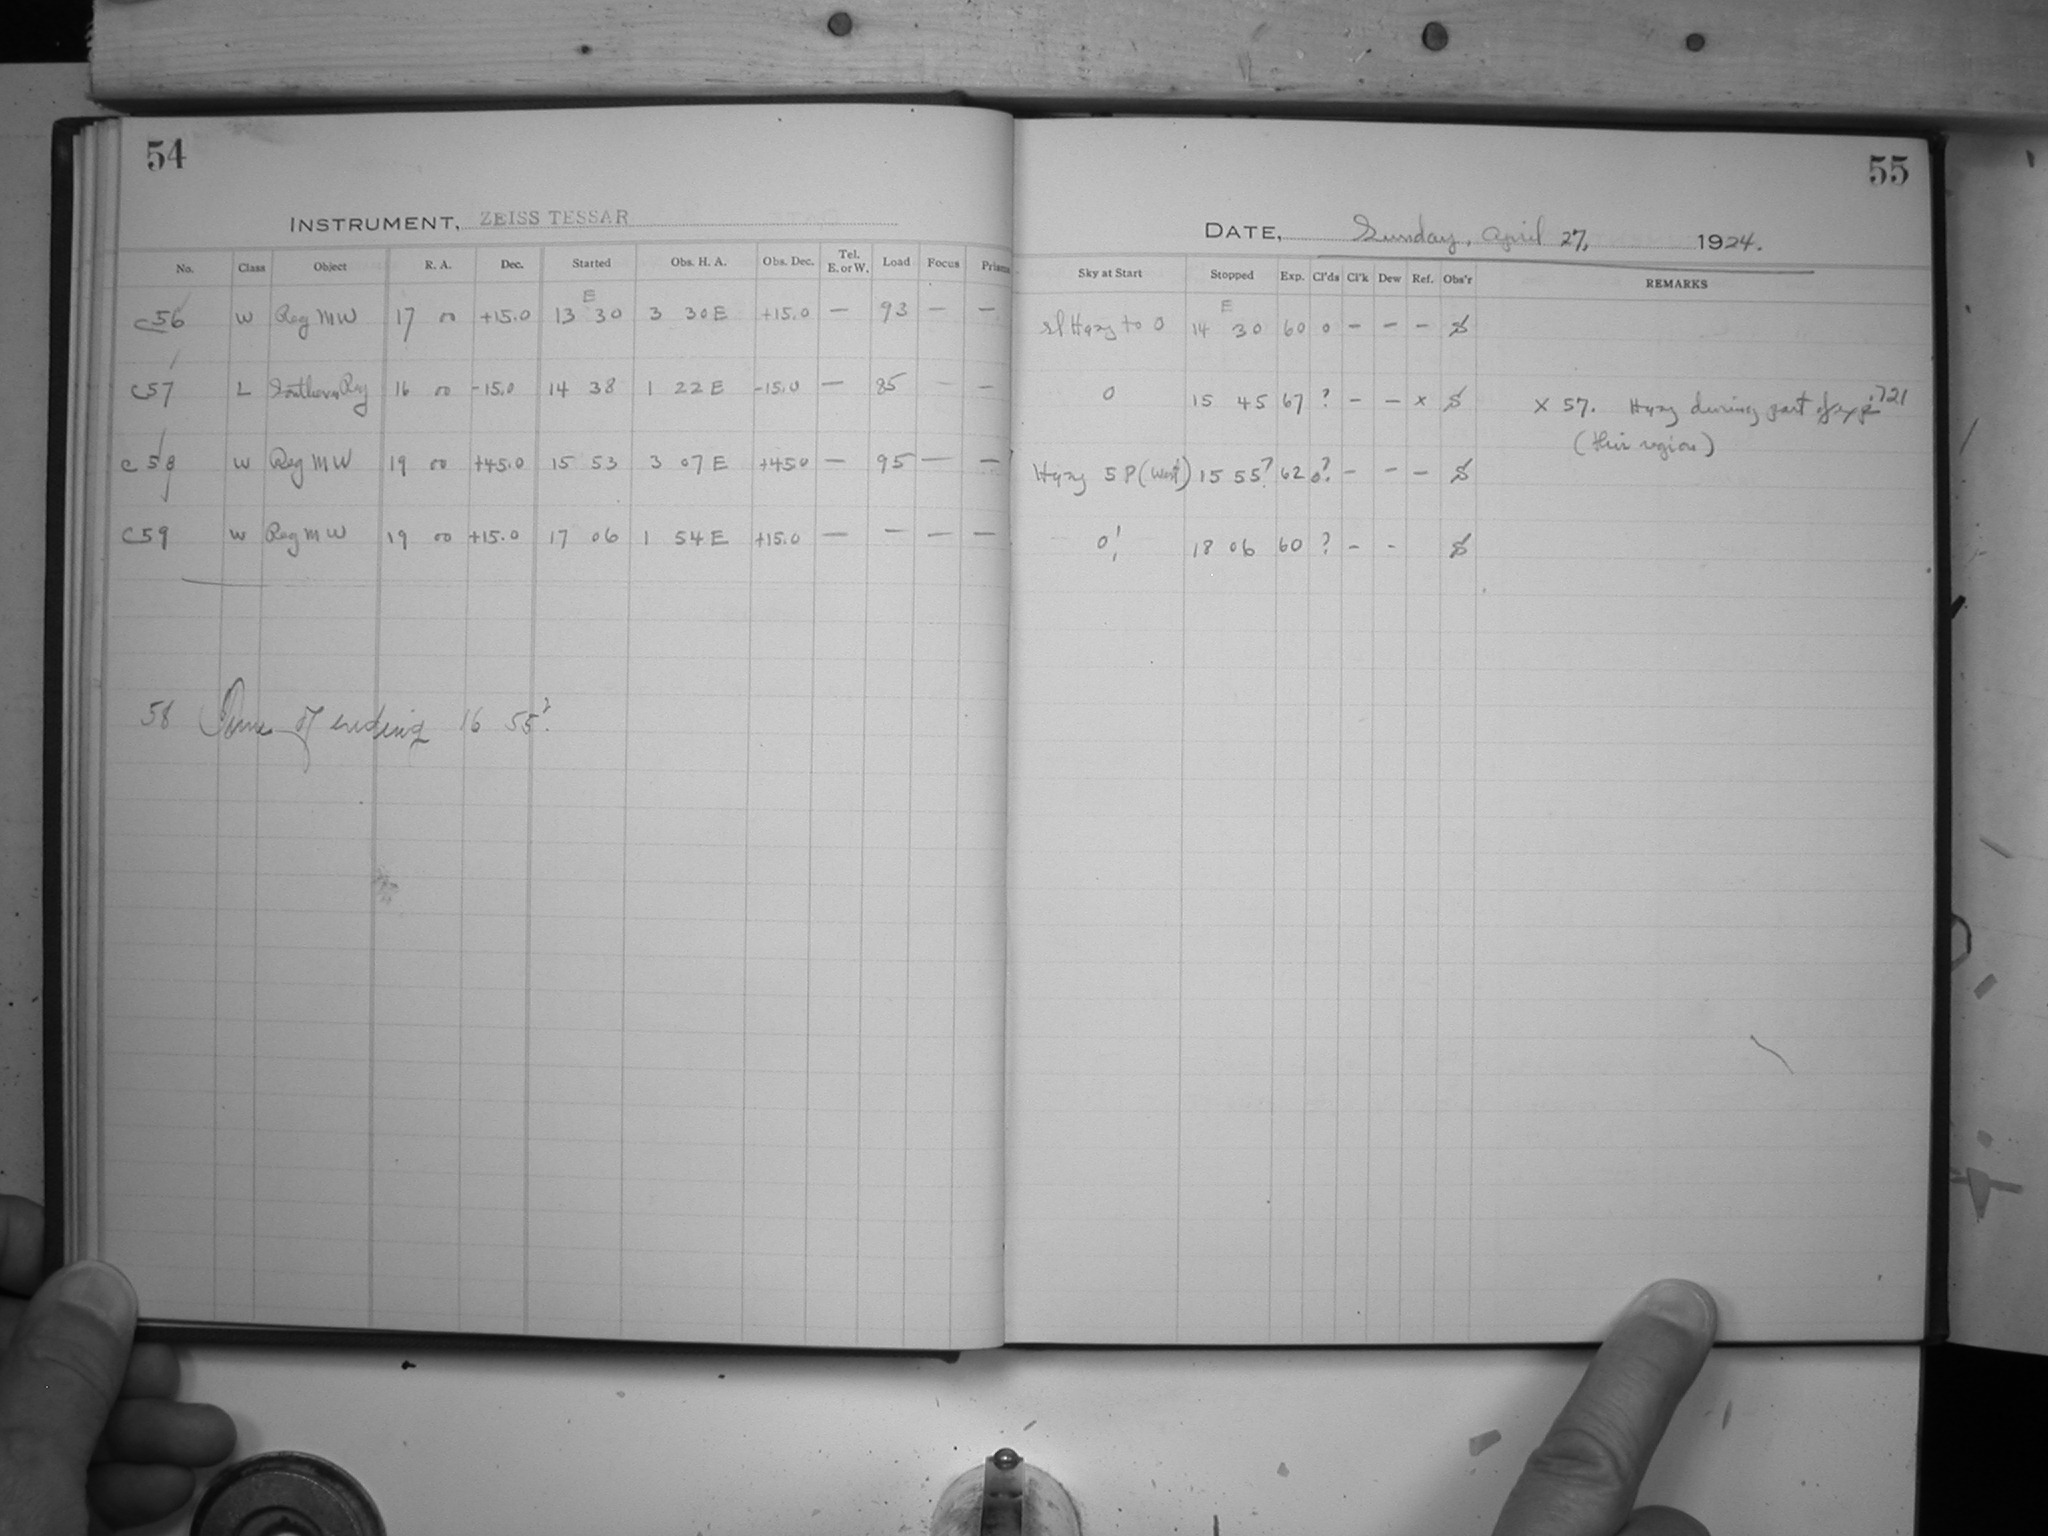 54
INSTRUMENT, ZEISS TESSAR
No. Class Object R. A. Dec. Started Obs. H. A. Obs. Dec. Tel. E. or W. Load Focus Prisms
C56 W Reg MW 17 00 +15.0 13 E 30 3 30 E +15.0 — 93 — —
C57 L Southern Reg 16 00 -15.0 14 38 1 22 E -15.0 — 85 — —
C58 W Reg MW 19 00 +45.0 15 53 3 07 E +45.0 — 95 — —
C59 W Reg MW 19 00 +15.0 17 06 1 54 E +15.0 — — — —
58 Time of ending 16 55?
55
DATE, Sunday, April 27, 1924.
Sky at Start Stopped Exp. Cl'ds Cl'k Dew Ref. Obs'r REMARKS
sl Hazy to 0 14 E 30 60 0 – – –
0 15 45 67 ? – – x x 57. Hazy during part of exp. 721
(this region)
Hazy SP (West) 15 55? 62 0? – – –
0! 18 06 60 ? – -